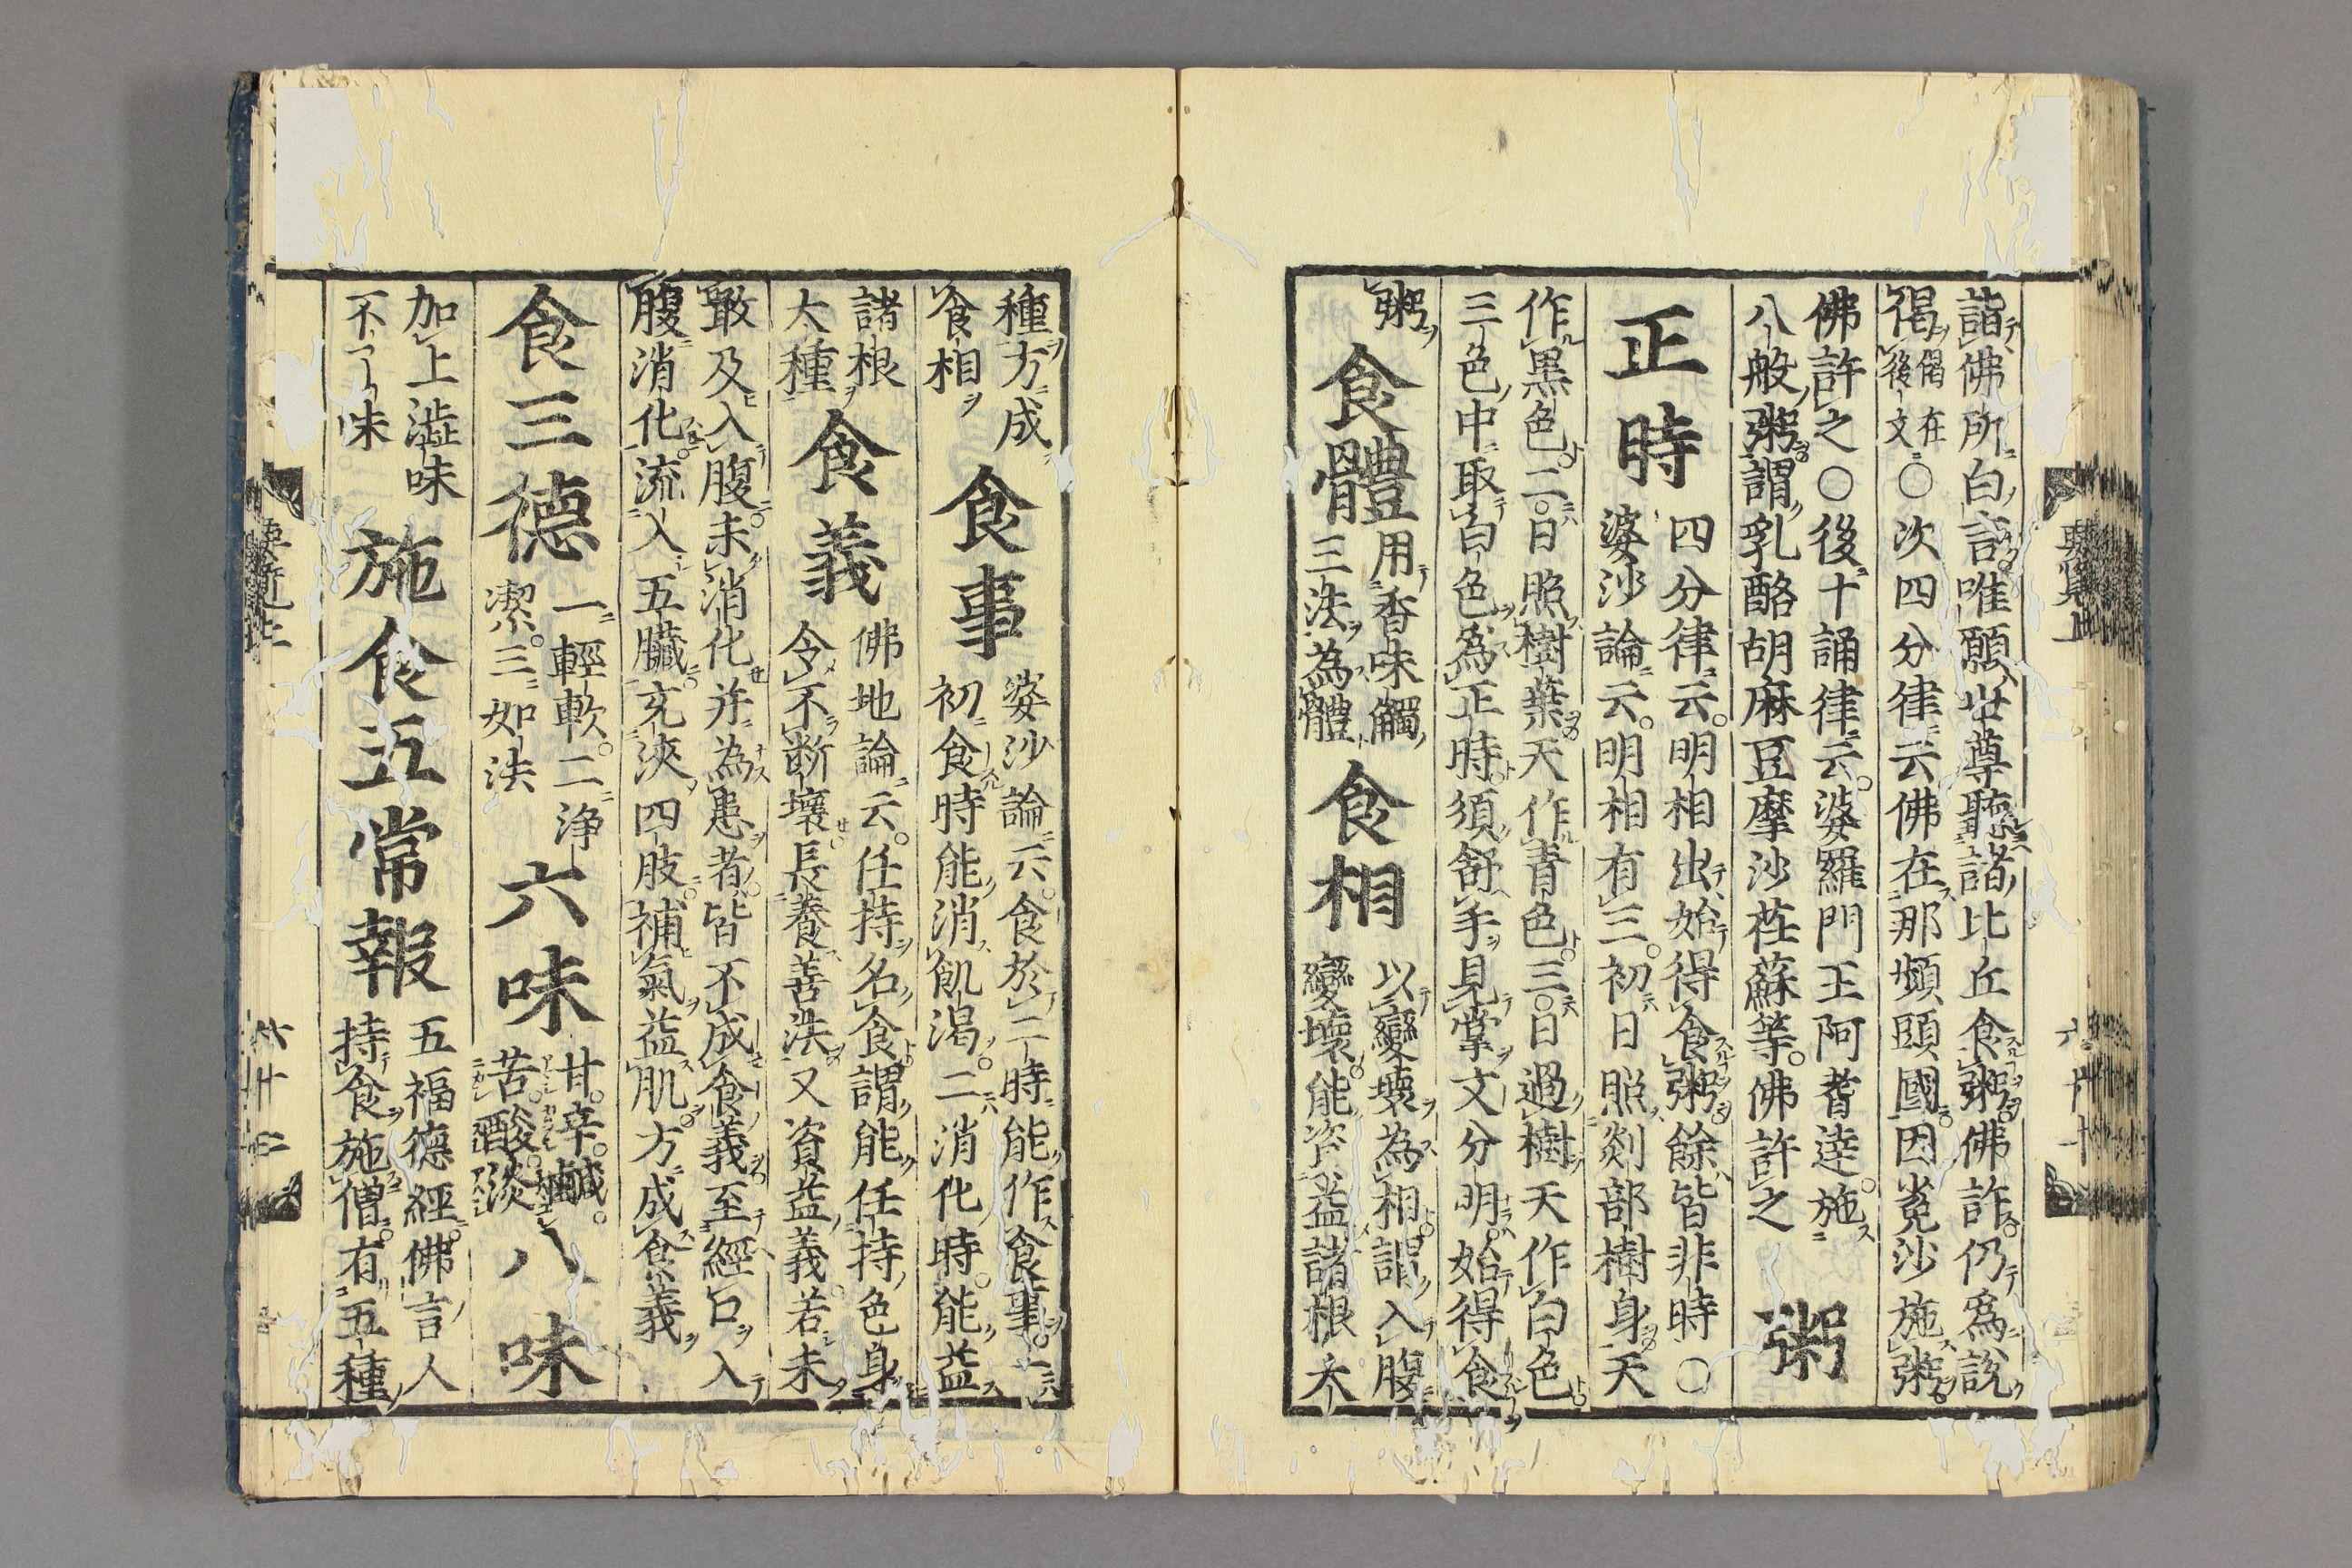 詣佛所白言唯願世尊聽諸比丘食粥佛許仍爲說
偈偈在後文〇次四分律云佛在那頻頭國因菟沙施粥
佛許之〇後十誦律云婆羅門王阿耆達施
八般粥謂乳酪胡麻豆摩沙荏蘇等佛許之
粥
正時
四分律云明相出始得食粥餘皆非時〇
婆沙論云明相有三初日照剡部樹身天
作黒色二日照樹葉天作青色三日過樹天作白色
三色中取白色爲正時須舒手見掌文分明始得食
粥
食體
用香味觸
三法為體
食相
以變壞為相謂入腹
變壞能資益諸根大
種方成
食相
食事
婆沙論云食於二時能作食事一
初食時能消飢渴二消化時能益
諸根
大種
食義
佛地論云任持名食謂能任持色身
令不斷壞長養善法又資益義若未
敢及入腹未消化并為患者皆不成食義至經口入
腹消化流入五臟充浹四肢補氣益肌方成食義
食三德
一輕軟二淨
潔三如法
六味
甘辛鹹
苦酸淡
八味
加上澁味
不了味
施食五常報
五福德經佛言人
持食施僧有五種